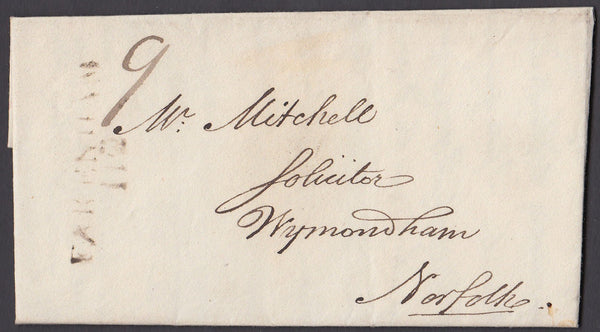 9
Mr. Mitchell
Solicitor
Wymondham
Norfolk.